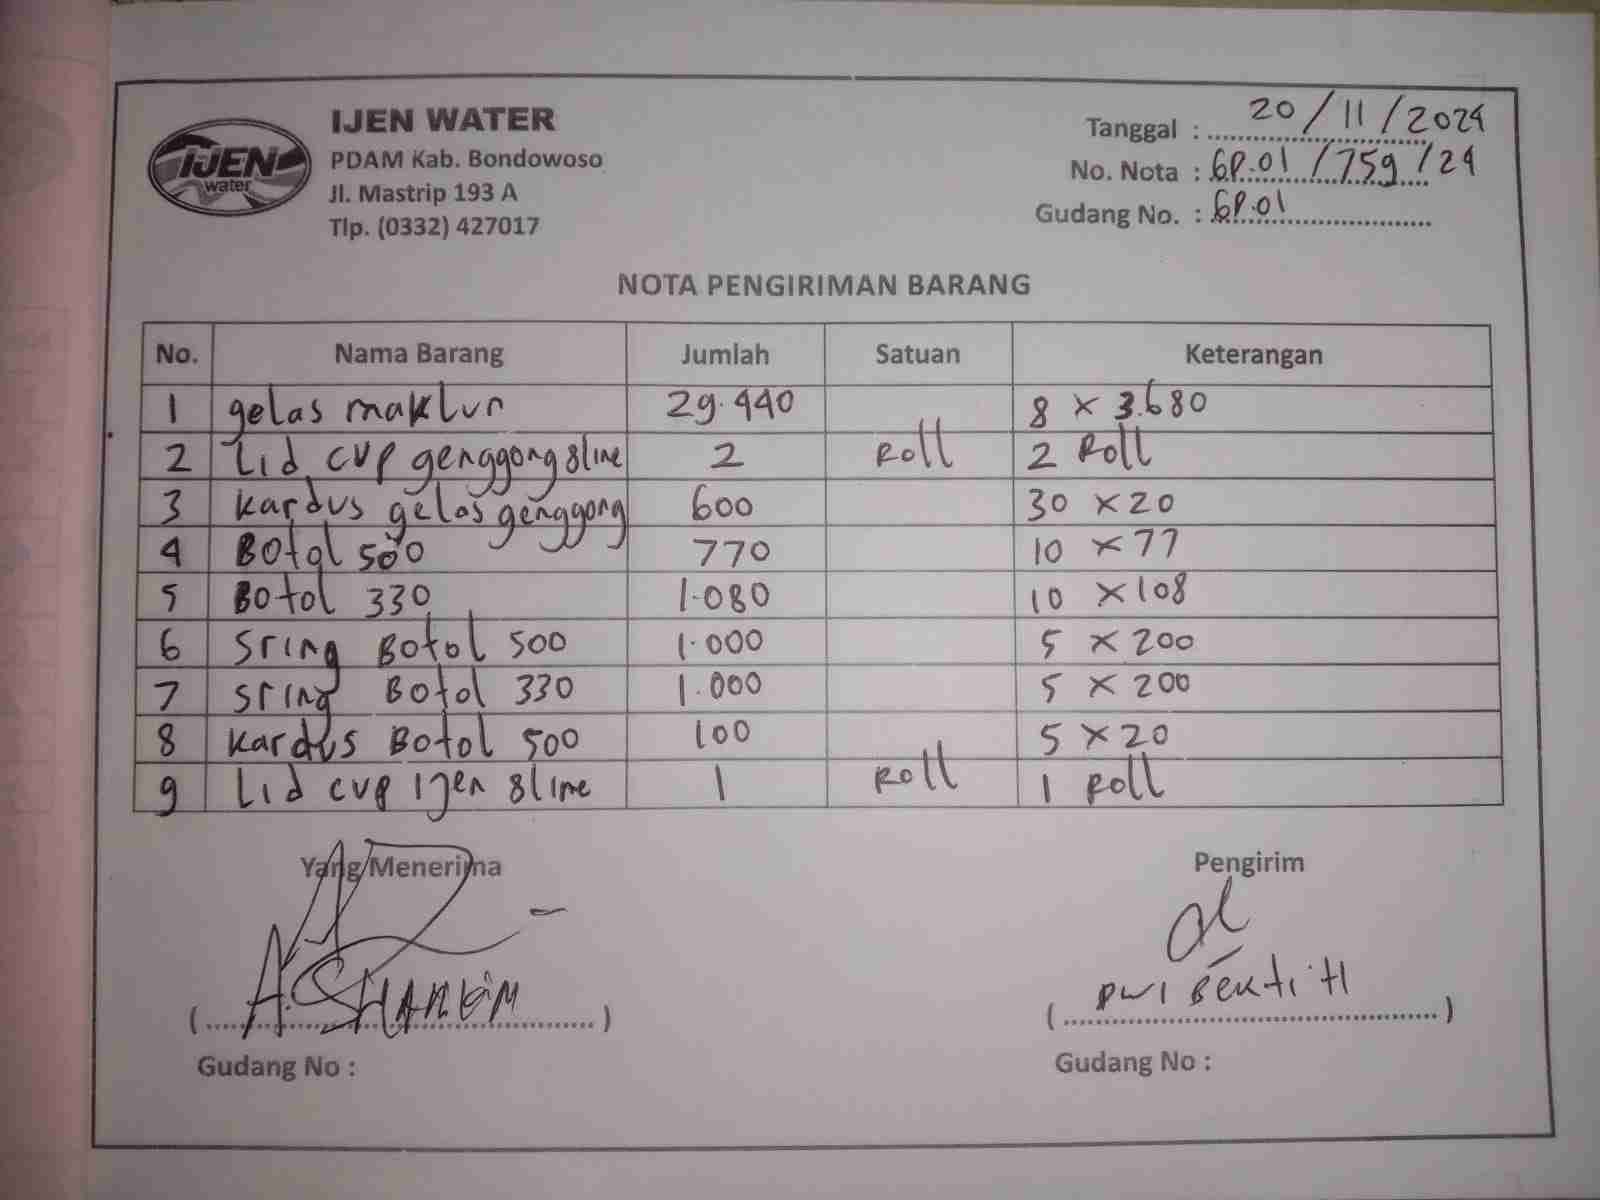 IJEN
water
IJEN WATER
PDAM Kab. Bondowoso
Jl. Mastrip 193 A
Tlp. (0332) 427017
Tanggal : 20/11/2024
No. Nota : GP.01/759/24
Gudang No. : GP.01
NOTA PENGIRIMAN BARANG
No. Nama Barang Jumlah Satuan Keterangan
1 gelas maklun 29.440 8 x 3.680
2 Lid cup genggong 8 line 2 Roll 2 Roll
3 Kardus gelas genggong 600 30 x 20
4 Botol 500 770 10 x 77
5 Botol 330 1.080 10 x 108
6 sring Botol 500 1.000 5 x 200
7 sring Botol 330 1.000 5 x 200
8 Kardus Botol 500 100 5 x 20
9 Lid cup ijen 8 line 1 Roll 1 Roll
Yang Menerima Pengirim
(A.) (DWI BEKTI H)
Gudang No : Gudang No :